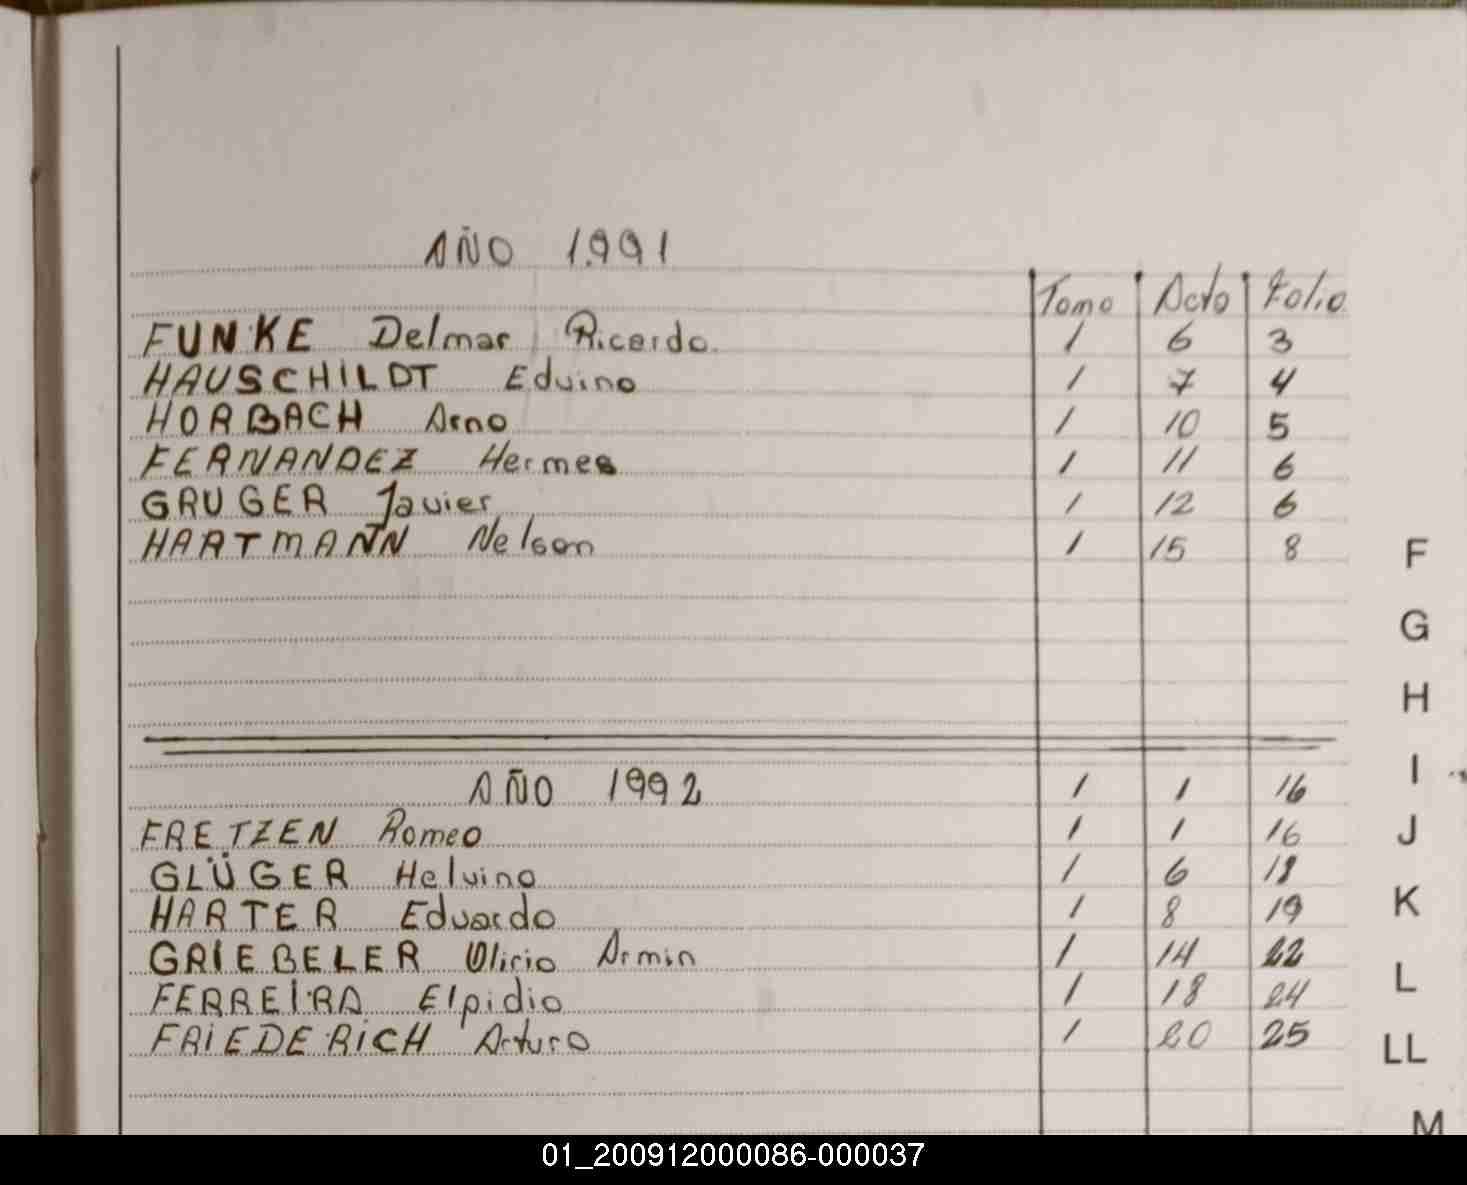 AÑO 1.991
Tomo Acta Folio
FUNKE Delmar Ricardo. 1 6 3
HAUSCHILDT Eduino 1 7 4
HORBACH Arno 1 10 5
FERNANDEZ Hermes 1 11 6
GRUGER Javier 1 12 6
HARTMANN Nelson 1 15 8
F
G
H
I
AÑO 1992 1 1 16
FRETZEN Romeo 1 1 16
J
GLÜGER Heluino 1 6 18
HARTER Eduardo 1 8 19
K
GRIEBELER Olirio Armin 1 14 22
L
FERREIRA Elpidio 1 18 24
FRIEDERICH Arturo 1 20 25
LL
M
01_200912000086-000037